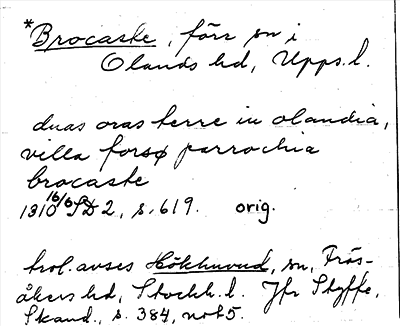 *Brocaske, förr sn i
Olands hd, Upps. l.
duas oras terre in olandia,
villa forsø parrochia
brocaske
1310 16/6 SD 2, s. 619. orig.
trol. avses Hökhuvud, sn, Frös-
åkers hd, Stockh. l. Jfr Styffe,
Skand., s. 384, not 5.